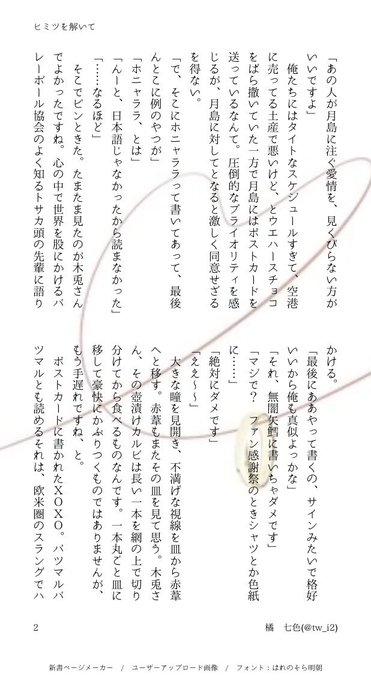 ヒミツを解いて
「あの人が月島に注ぐ愛情を、見くびらない方が
いいですよ」
　俺たちにはタイトなスケジュールすぎて、空港
に売ってる土産で悪いけど、とウエハースチョコ
をばら撒いていた一方で月島にはポストカードを
送っているなんて。圧倒的なプライオリティを感
じるが、月島に対してとなると激しく同意せざる
を得ない。
「で、そこにホニャララって書いてあって、最後
んとこに例のやつが」
「ホニャララ、とは」
「んーと、日本語じゃなかったから読まなかった」
「……なるほど」
　そこでピンときた。たまたま見たのが木兎さん
でよかったですね。心の中で世界を股にかけるバ
レーボール協会のよく知るトサカ頭の先輩に語り
かける。
「最後にああやって書くの、サインみたいで格好
いいから俺も真似よっかな」
「それ、無闇矢鱈に書いちゃダメです」
「マジで？　ファン感謝祭のときシャツとか色紙
に……」
「絶対にダメです」
「ええ〜〜」
　大きな瞳を見開き、不満げな視線を皿から赤葦
へと移す。赤葦もまたその皿を見て思う。木兎さ
ん、その壺漬けカルビは長い一本を網の上で切り
分けてから食べるものなんです。一本丸ごと皿に
移して豪快にかぶりつくものではありませんが、
もう手遅れですね、と。
　ポストカードに書かれたＸＯＸＯ。バツマルバ
ツマルとも読めるそれは、欧米圏のスラングでハ
2
橘　七色(@tw_i2)
新書ページメーカー　/　ユーザーアップロード画像　/　フォント：はれのそら明朝